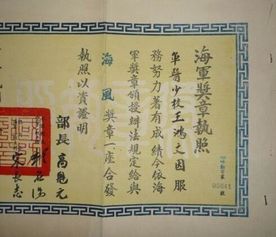 海軍獎章執照
軍醫少校王鴻之因服
務努力著有成績今依海
軍獎章頒發辦法規定給與
海風獎章一座合發
執照以資證明
部長 高魁元
宋長志